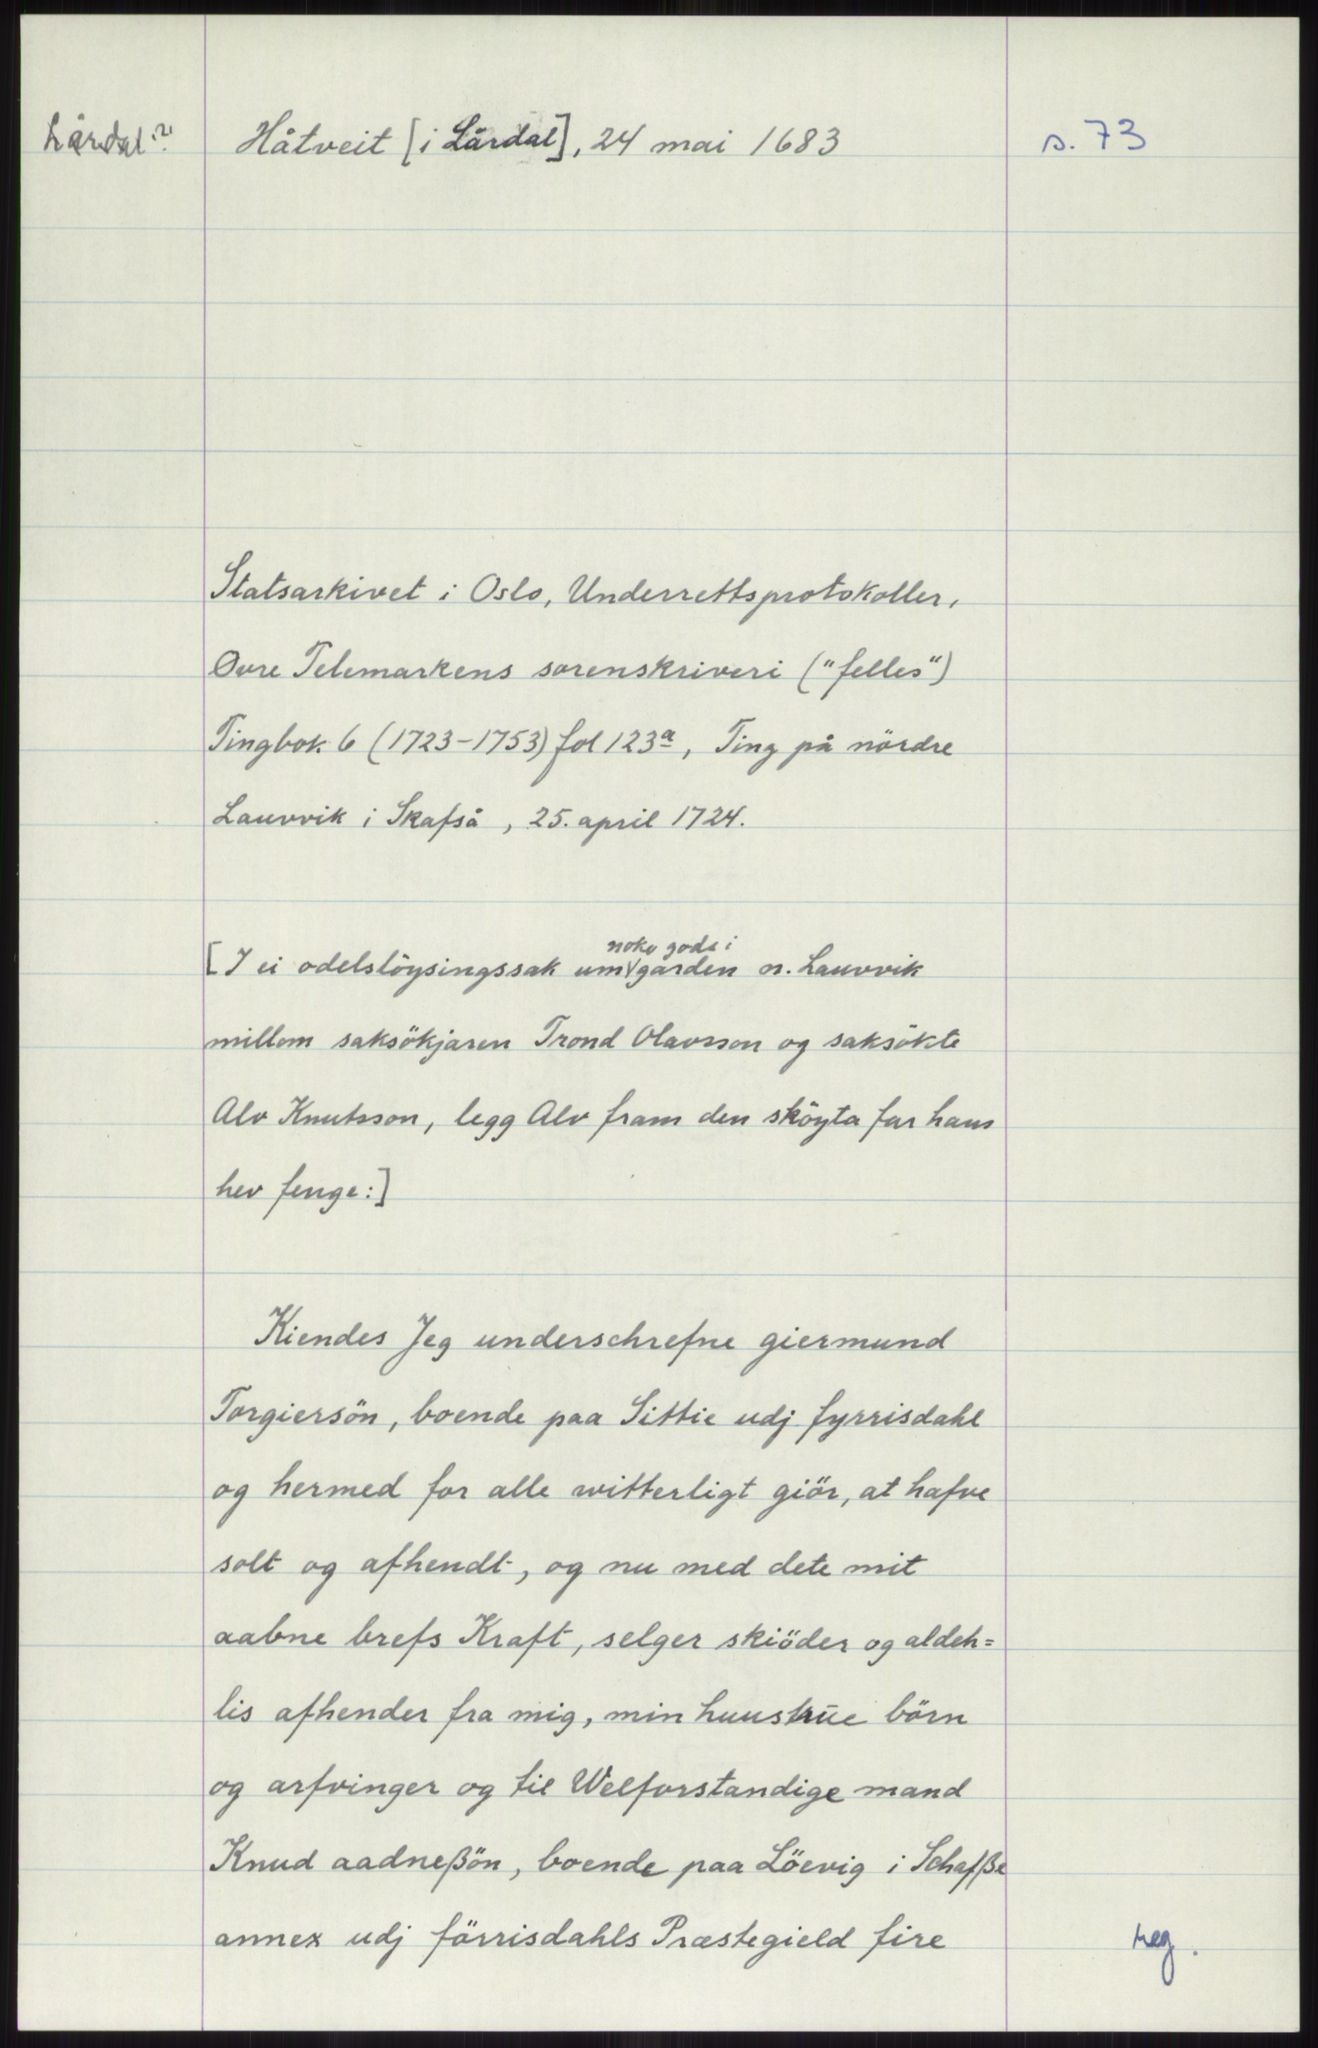 Lårdal?
Håtveit [i Lårdal], 24 mai 1683
s. 73
Statsarkivet i Oslo, Underrettsprotokoller,
Øvre Telemarkens sorenskriveri ("felles")
Tingbok 6 (1723-1753) fol 123a, Ting på nördre
Lauvvik i Skafså, 25. april 1724.
[I ei odelslöysingssak um noko gods i garden n. Lauvvik
millom saksökjaren Trond Olavsson og saksökte
Alv Knutsson, legg Alv fram den sköyta far hans
hev fenge:]
Kiendes Jeg underschrefne giermund
Torgiersön, boende paa Sittie udj fyrrisdahl
og hermed for alle witterligt giör, at hafve
solt og afhendt, og nu med dete mit
aabne brefs Kraft, selger skiöder og aldeh=
lis afhender fra mig, min huustrūe börn
og arfvinger og til Welforstandige mand
Knud aadneßön, boende paa Löevig i Schafße
annex udj förrisdahls Præstegield fire
reg.